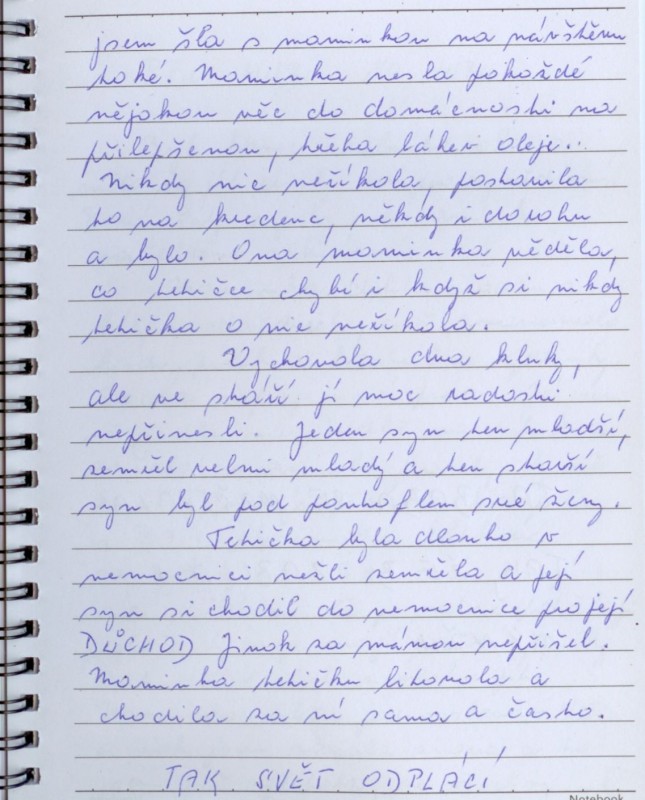 jsem šla s maminkou na návštěvu
také. Maminka nesla pokaždé
nějakou věc do domácnosti na
přilepšenou, třeba láhev oleje..
Nikdy nic neříkala, postavila
to na kredenc, někdy i dorahu
a bylo. Ona maminka věděla,
co tetičce chybí i když si nikdy
tetička o nic neříkala.
Vychovala dva kluky,
ale ve stáří jí moc radosti
nepřinesli. Jeden syn ten mladší,
zemřel velmi mladý a ten starší
syn byl pod pantoflem své ženy.
Tetička byla dlouho v
nemocnici nežli zemřela a její
syn si chodil do nemocnice pro její
DŮCHOD Jinak za mámou nepřišel.
Maminka tetičku litovala a
chodila za ní sama a často.
TAK SVĚT ODPLÁCÍ
Notebook